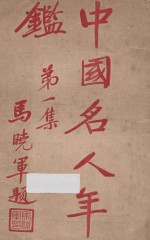 中國名人年
鑑
第一集
馬曉軍題